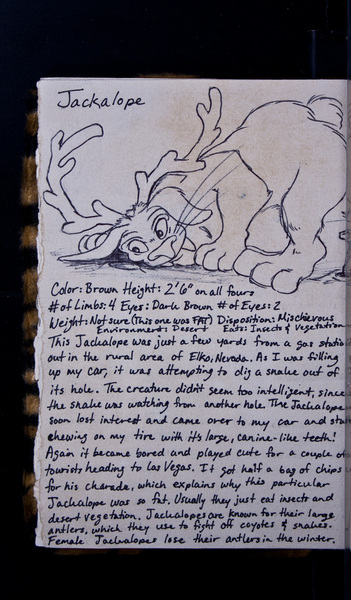 Jackalope
Color: Brown Height: 2'6" on all fours
# of Limbs: 4 Eyes: Dark Brown # of Eyes: 2
Weight: Not sure (This one was FAT) Disposition: Mischievous
Environment: Desert Eats: Insects & Vegetation
This Jackalope was just a few yards from a gas statio
out in the rural area of Elko, Nevada. As I was filling
up my car, it was attempting to dig a snake out of
its hole. The creature didn't seem too intelligent, since
the snake was watching from another hole. The Jackalope
soon lost interest and came over to my car and sta
chewing on my tire with its large, canine-like teeth!
Again it became bored and played cute for a couple of
tourists heading to Las Vegas. It got half a bag of chips
for his charade, which explains why this particular
Jackalope was so fat. Usually they just eat insects and
desert vegetation. Jackalopes are known for their large
antlers, which they use to fight off coyotes & snakes.
Female Jackalopes lose their antlers in the winter.